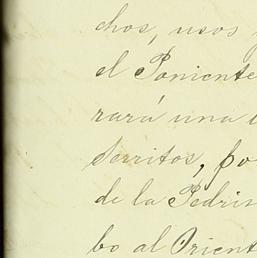 chos, usos
el Poniente
rará una
Serritos, po
de la Pedri
bo al Orient